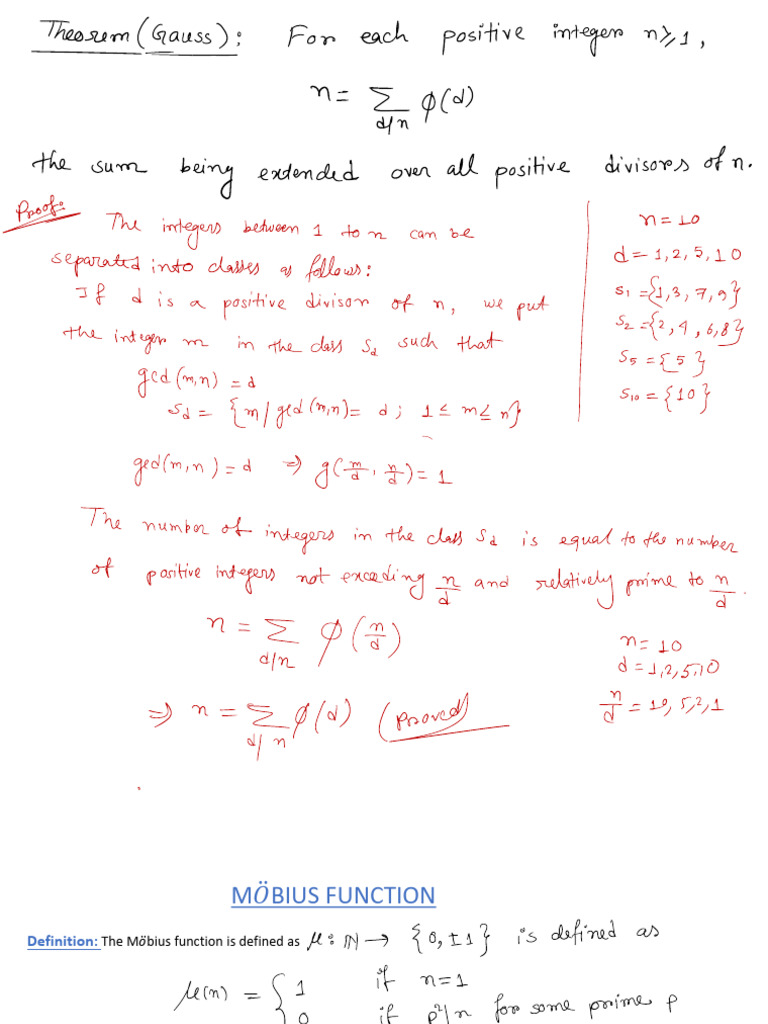 Theorem (Gauss): For each positive integer n≥1,
n = Σ φ(d)
d/n
the sum being extended over all positive divisors of n.
Proof:
The integers between 1 to n can be
separated into classes as follows:
If d is a positive divisor of n, we put
the integer m in the class S_d such that
gcd(m,n) = d
S_d = {m / gcd(m,n) = d; 1 ≤ m ≤ n}
n = 10
d = 1, 2, 5, 10
S₁ = {1, 3, 7, 9}
S₂ = {2, 4, 6, 8}
S₅ = {5}
S₁₀ = {10}
ged(m,n) = d ⇒ g(m/d, n/d) = 1
The number of integers in the class S_d is equal to the number
of positive integers not exceding n/d and relatively prime to n/d.
n = Σ φ(n/d)
d/n
⇒ n = Σ φ(d) (Proved)
d/n
n = 10
d = 1, 2, 5, 10
n/d = 10, 5, 2, 1
MÖBIUS FUNCTION
Definition: The Möbius function is defined as μ: ℕ → {0, ±1} is defined as
μ(n) = { 1 if n=1
0 if p²/n for some prime p